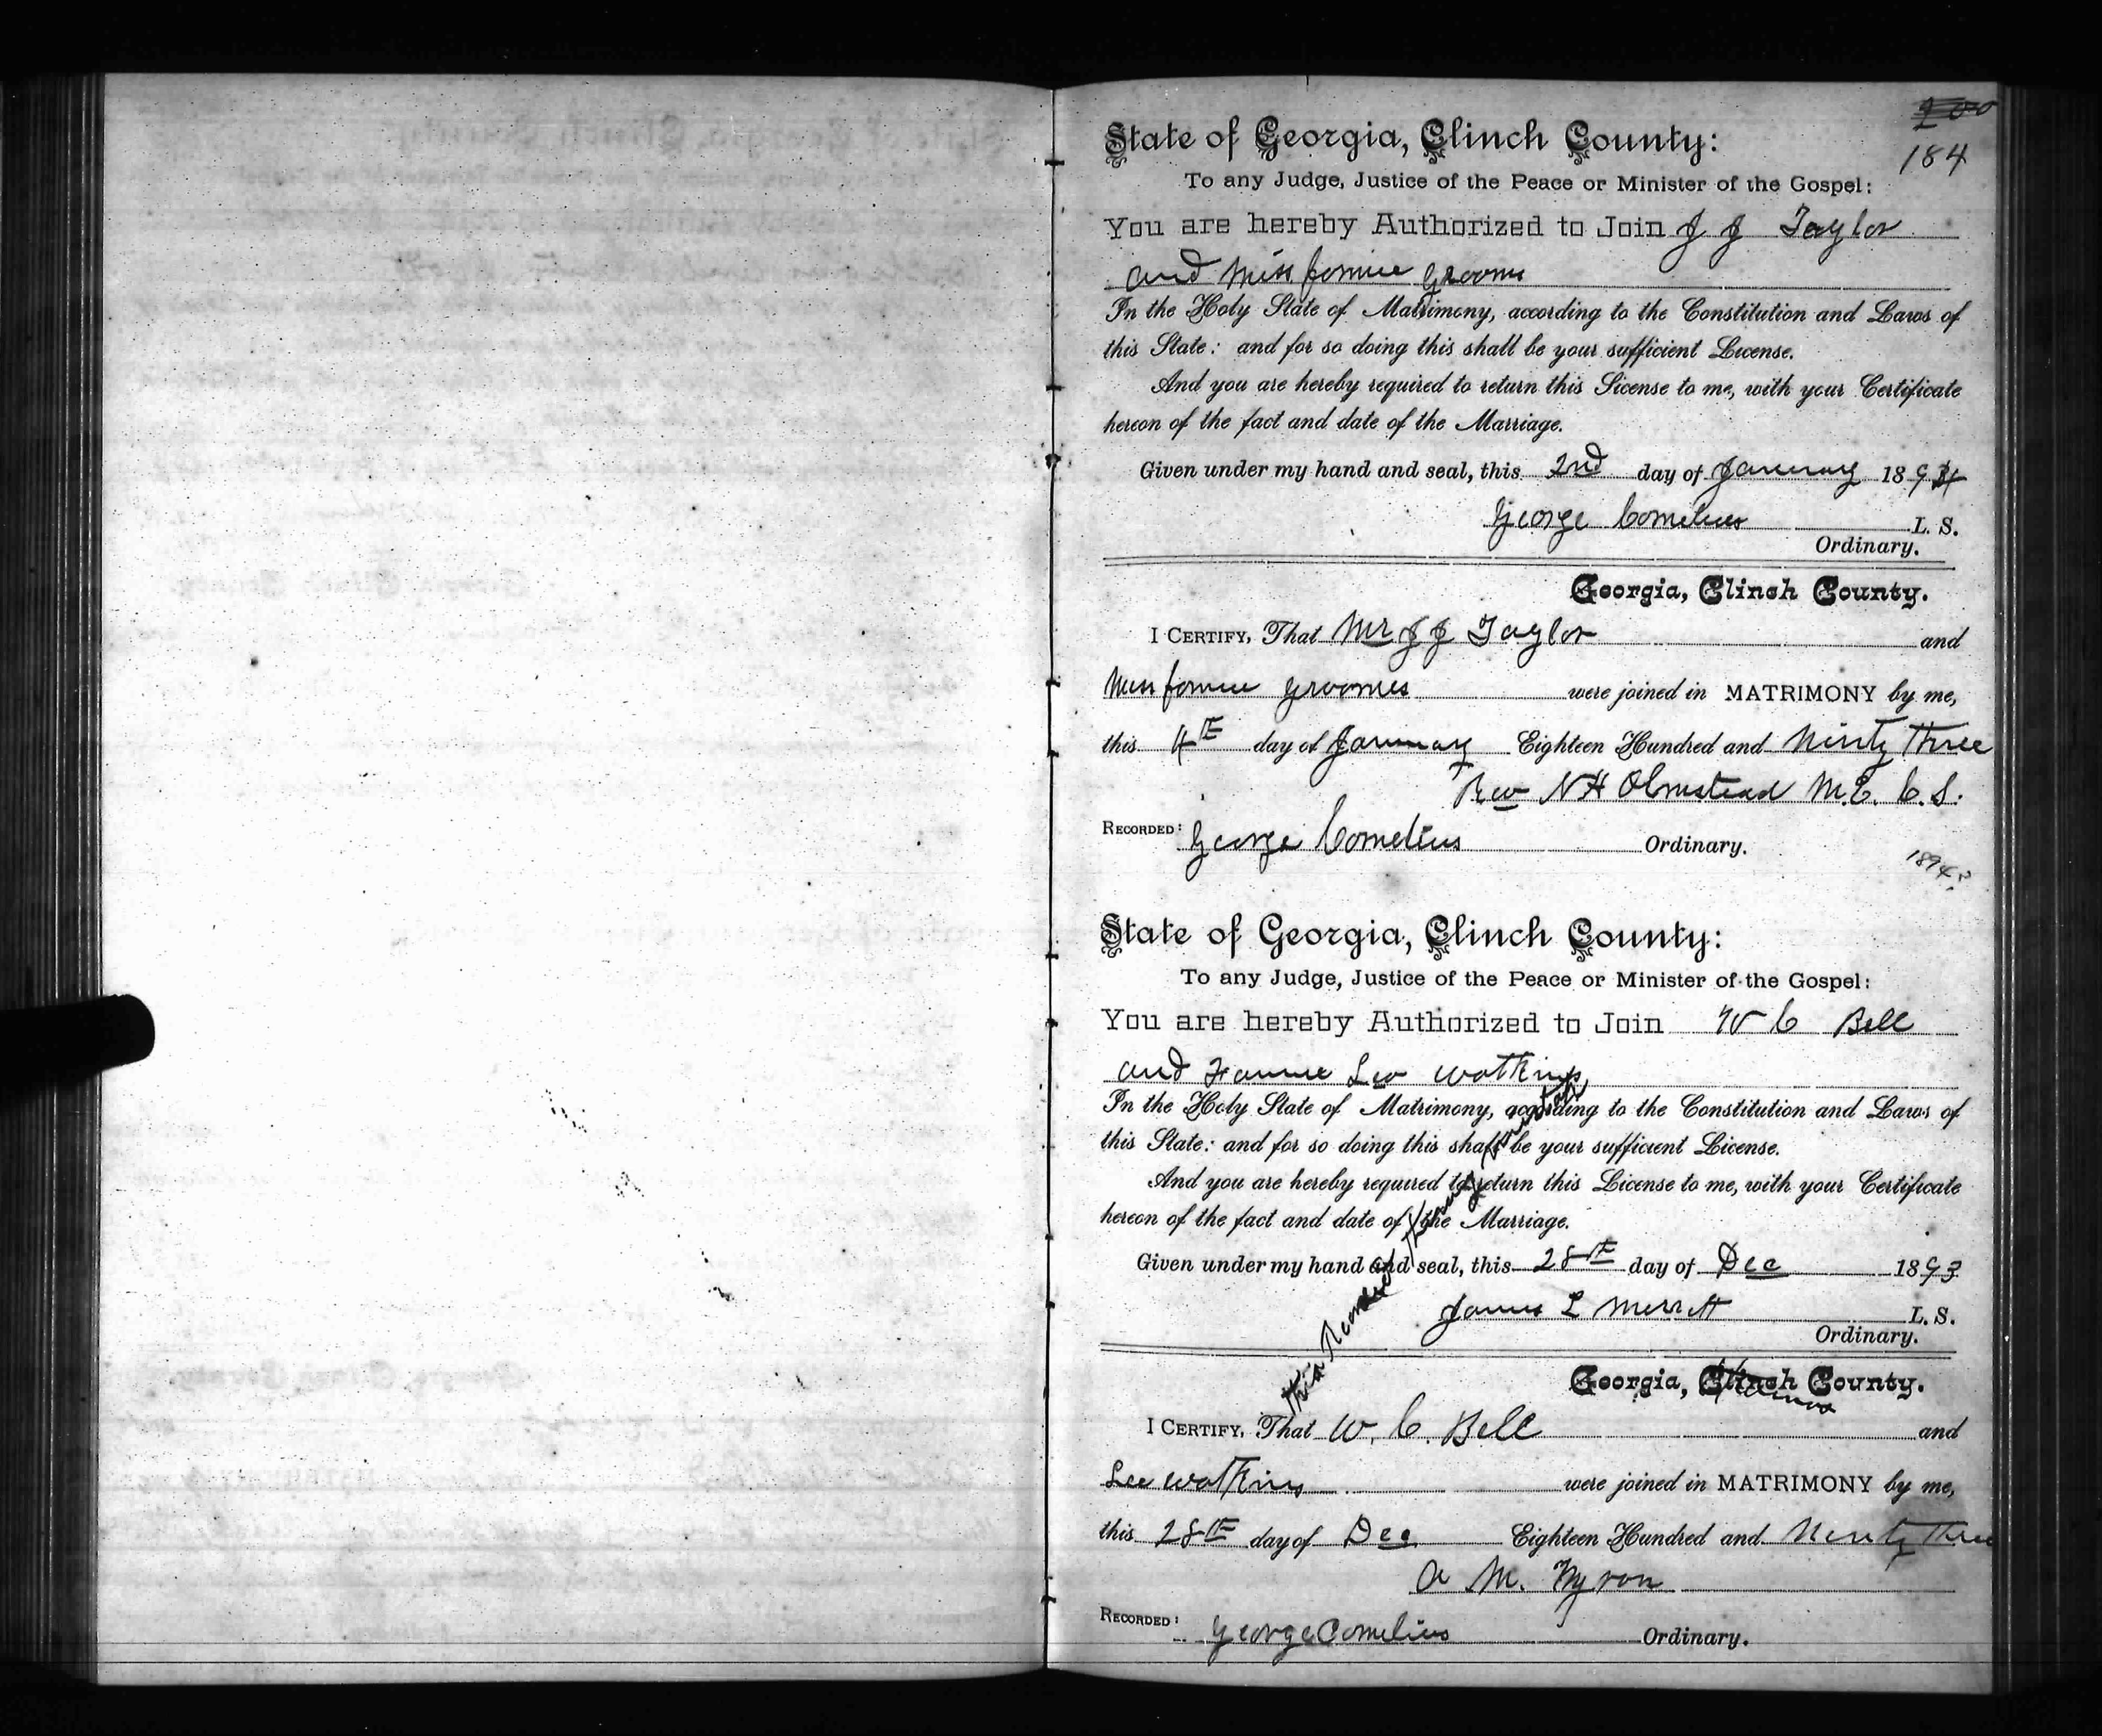 184
State of Georgia, Clinch County:
To any Judge, Justice of the Peace or Minister of the Gospel:
You are hereby Authorized to Join J J Taylor
and Miss Grooms
In the Holy State of Matrimony, according to the Constitution and Laws of
this State: and for so doing this shall be your sufficient License.
And you are hereby required to return this License to me, with your Certificate
hereon of the fact and date of the Marriage.
Given under my hand and seal, this 2nd day of January 1894
George Cornelius L. S.
Ordinary.
Georgia, Clinch County.
I Certify, That Mr J J Taylor and
Miss Groomes were joined in MATRIMONY by me,
this 4th day of January Eighteen Hundred and Ninty Three
Rev N H Olmstead M. E. C. S.
Recorded: George Cornelius Ordinary.
1894?
State of Georgia, Clinch County:
To any Judge, Justice of the Peace or Minister of the Gospel:
You are hereby Authorized to Join W C Bell
and Fannie Lee Watkins
In the Holy State of Matrimony, according to the Constitution and Laws of
this State: and for so doing this shall be your sufficient License.
And you are hereby required to return this License to me, with your Certificate
hereon of the fact and date of the Marriage.
Given under my hand and seal, this 28th day of Dec 1893
James L Merritt L. S.
Ordinary.
this Recorded
Georgia, Clinch County.
I Certify, That W. C. Bell and
Lee Watkins were joined in MATRIMONY by me,
this 28th day of Dec Eighteen Hundred and Ninty Three
A M.
Recorded: George Cornelius Ordinary.